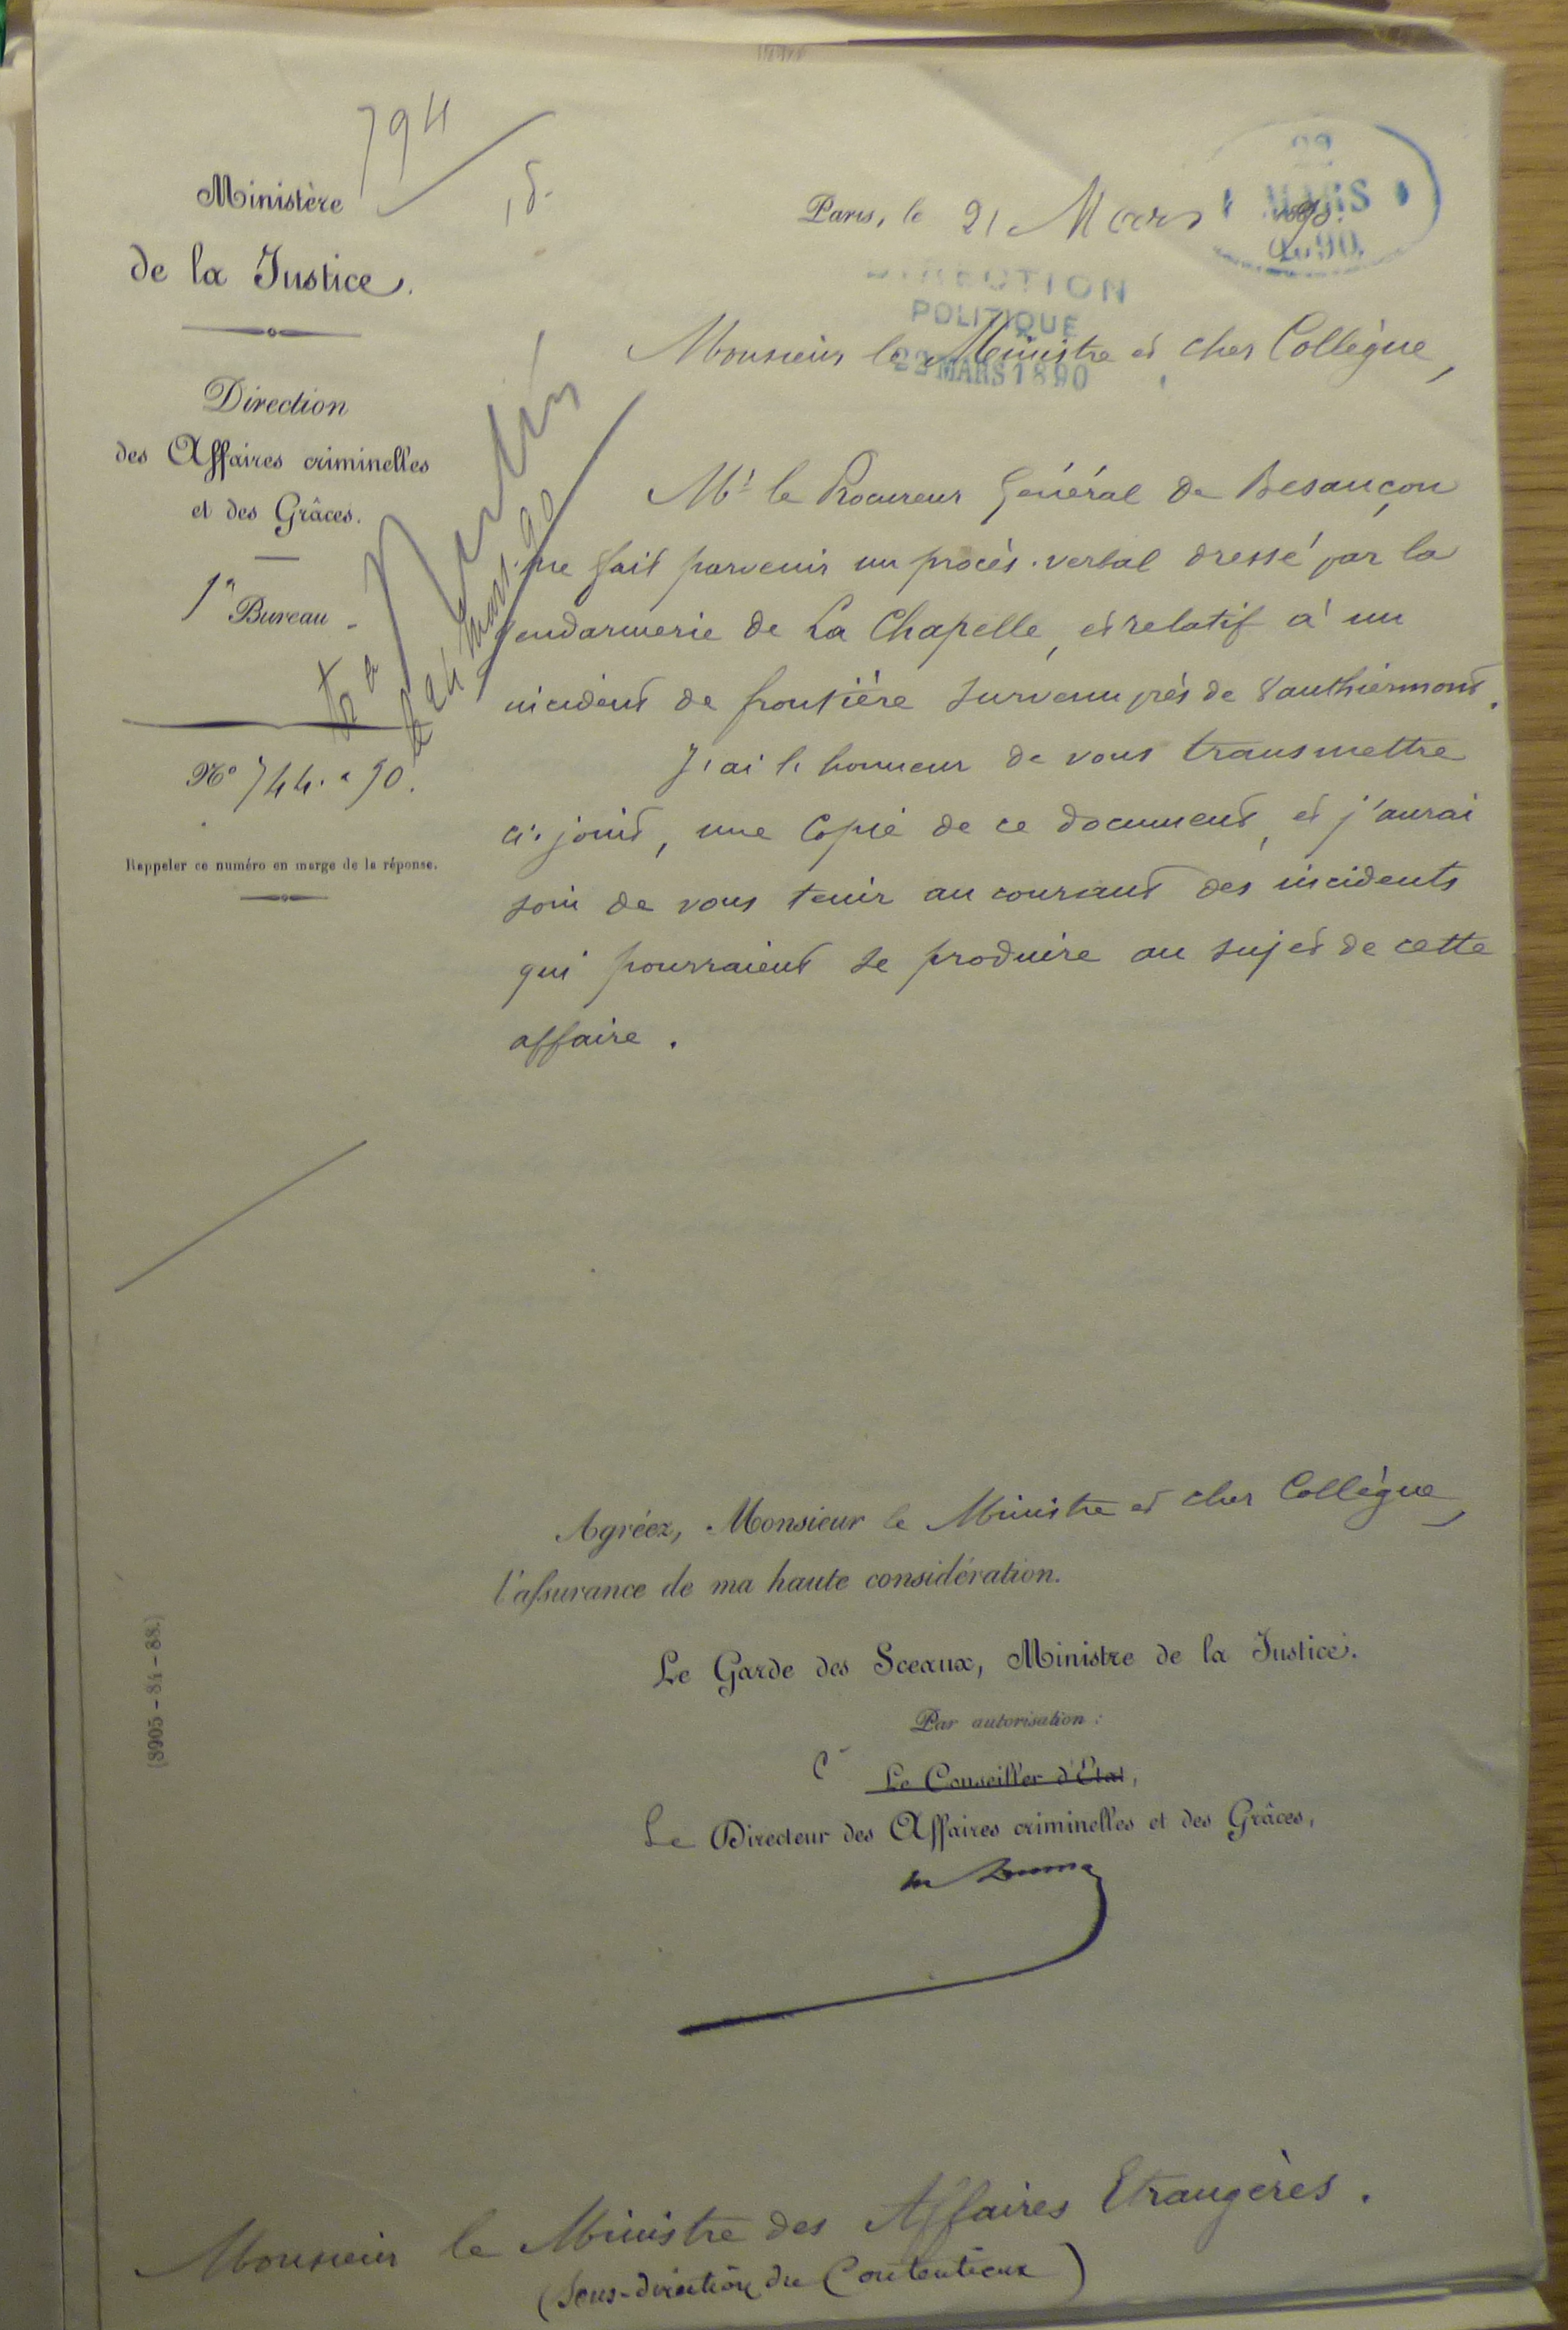 794
Ministère
de la Justice.
Direction
des Affaires criminelles
et des Grâces.
1er Bureau
No 744. a 90.
Rappeler ce numéro en marge de la réponse.
Paris, le 21 Mars 1890.
22
MARS
1890
DIRECTION
POLITIQUE
22 MARS 1890
Berlin
24 mars. 90
Monsieur le Ministre et cher Collègue,
Mr le Procureur Général de Besançon
me fait parvenir un procès-verbal dressé par la
gendarmerie de La Chapelle, et relatif à un
incident de frontière survenu près de Vauthiermont.
J'ai l'honneur de vous transmettre
ci-joint, une copie de ce document, et j'aurai
soin de vous tenir au courant des incidents
qui pourraient se produire au sujet de cette
affaire.
Agréez, Monsieur le Ministre et cher Collègue,
l'assurance de ma haute considération.
Le Garde des Sceaux, Ministre de la Justice.
Par autorisation :
Le Conseiller d'Etat,
Le Directeur des Affaires criminelles et des Grâces,
(8905-84-88.)
Monsieur le Ministre des Affaires Etrangères.
(Sous-direction du Contentieux)